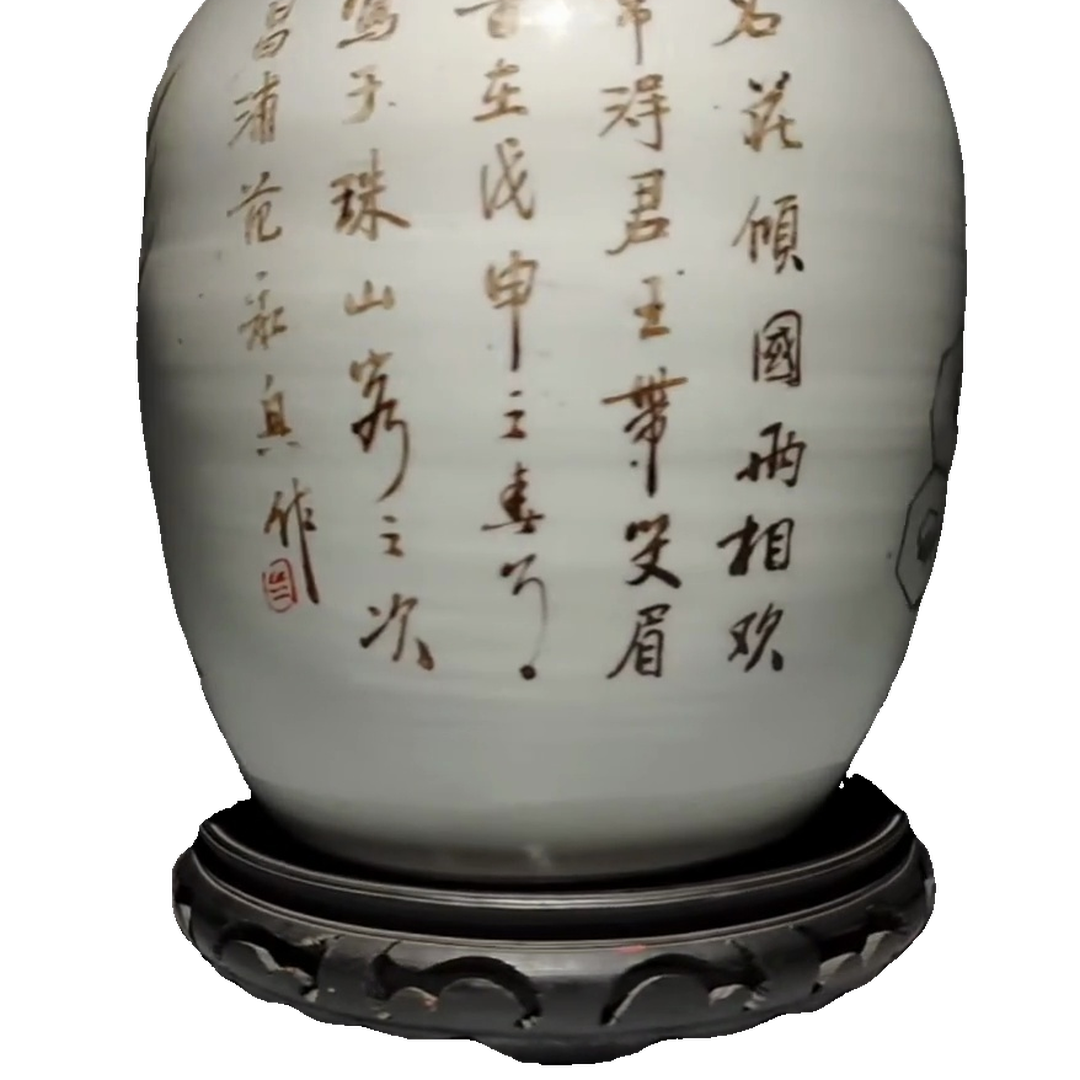 名花傾國兩相欢
常得君王帶笑眉
在戊申之春月
寫于珠山客次
昌浦范永興作